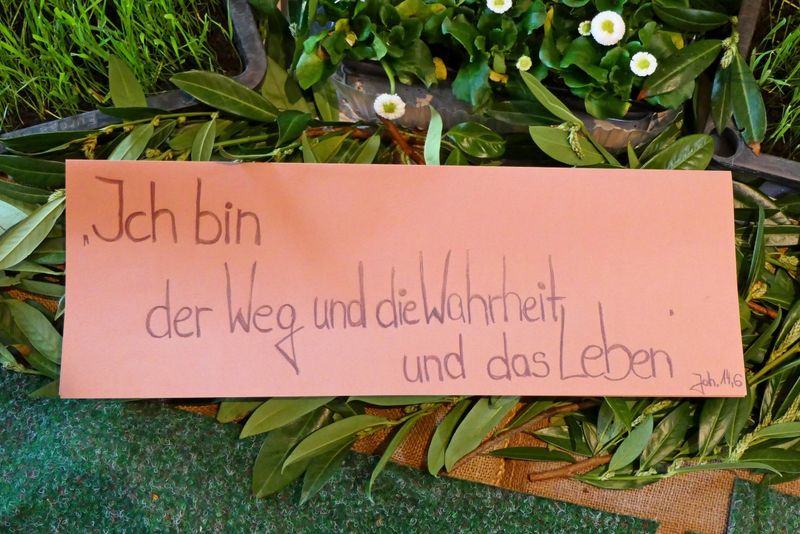 „Ich bin
der Weg und die Wahrheit
und das Leben"
Joh. 14,6